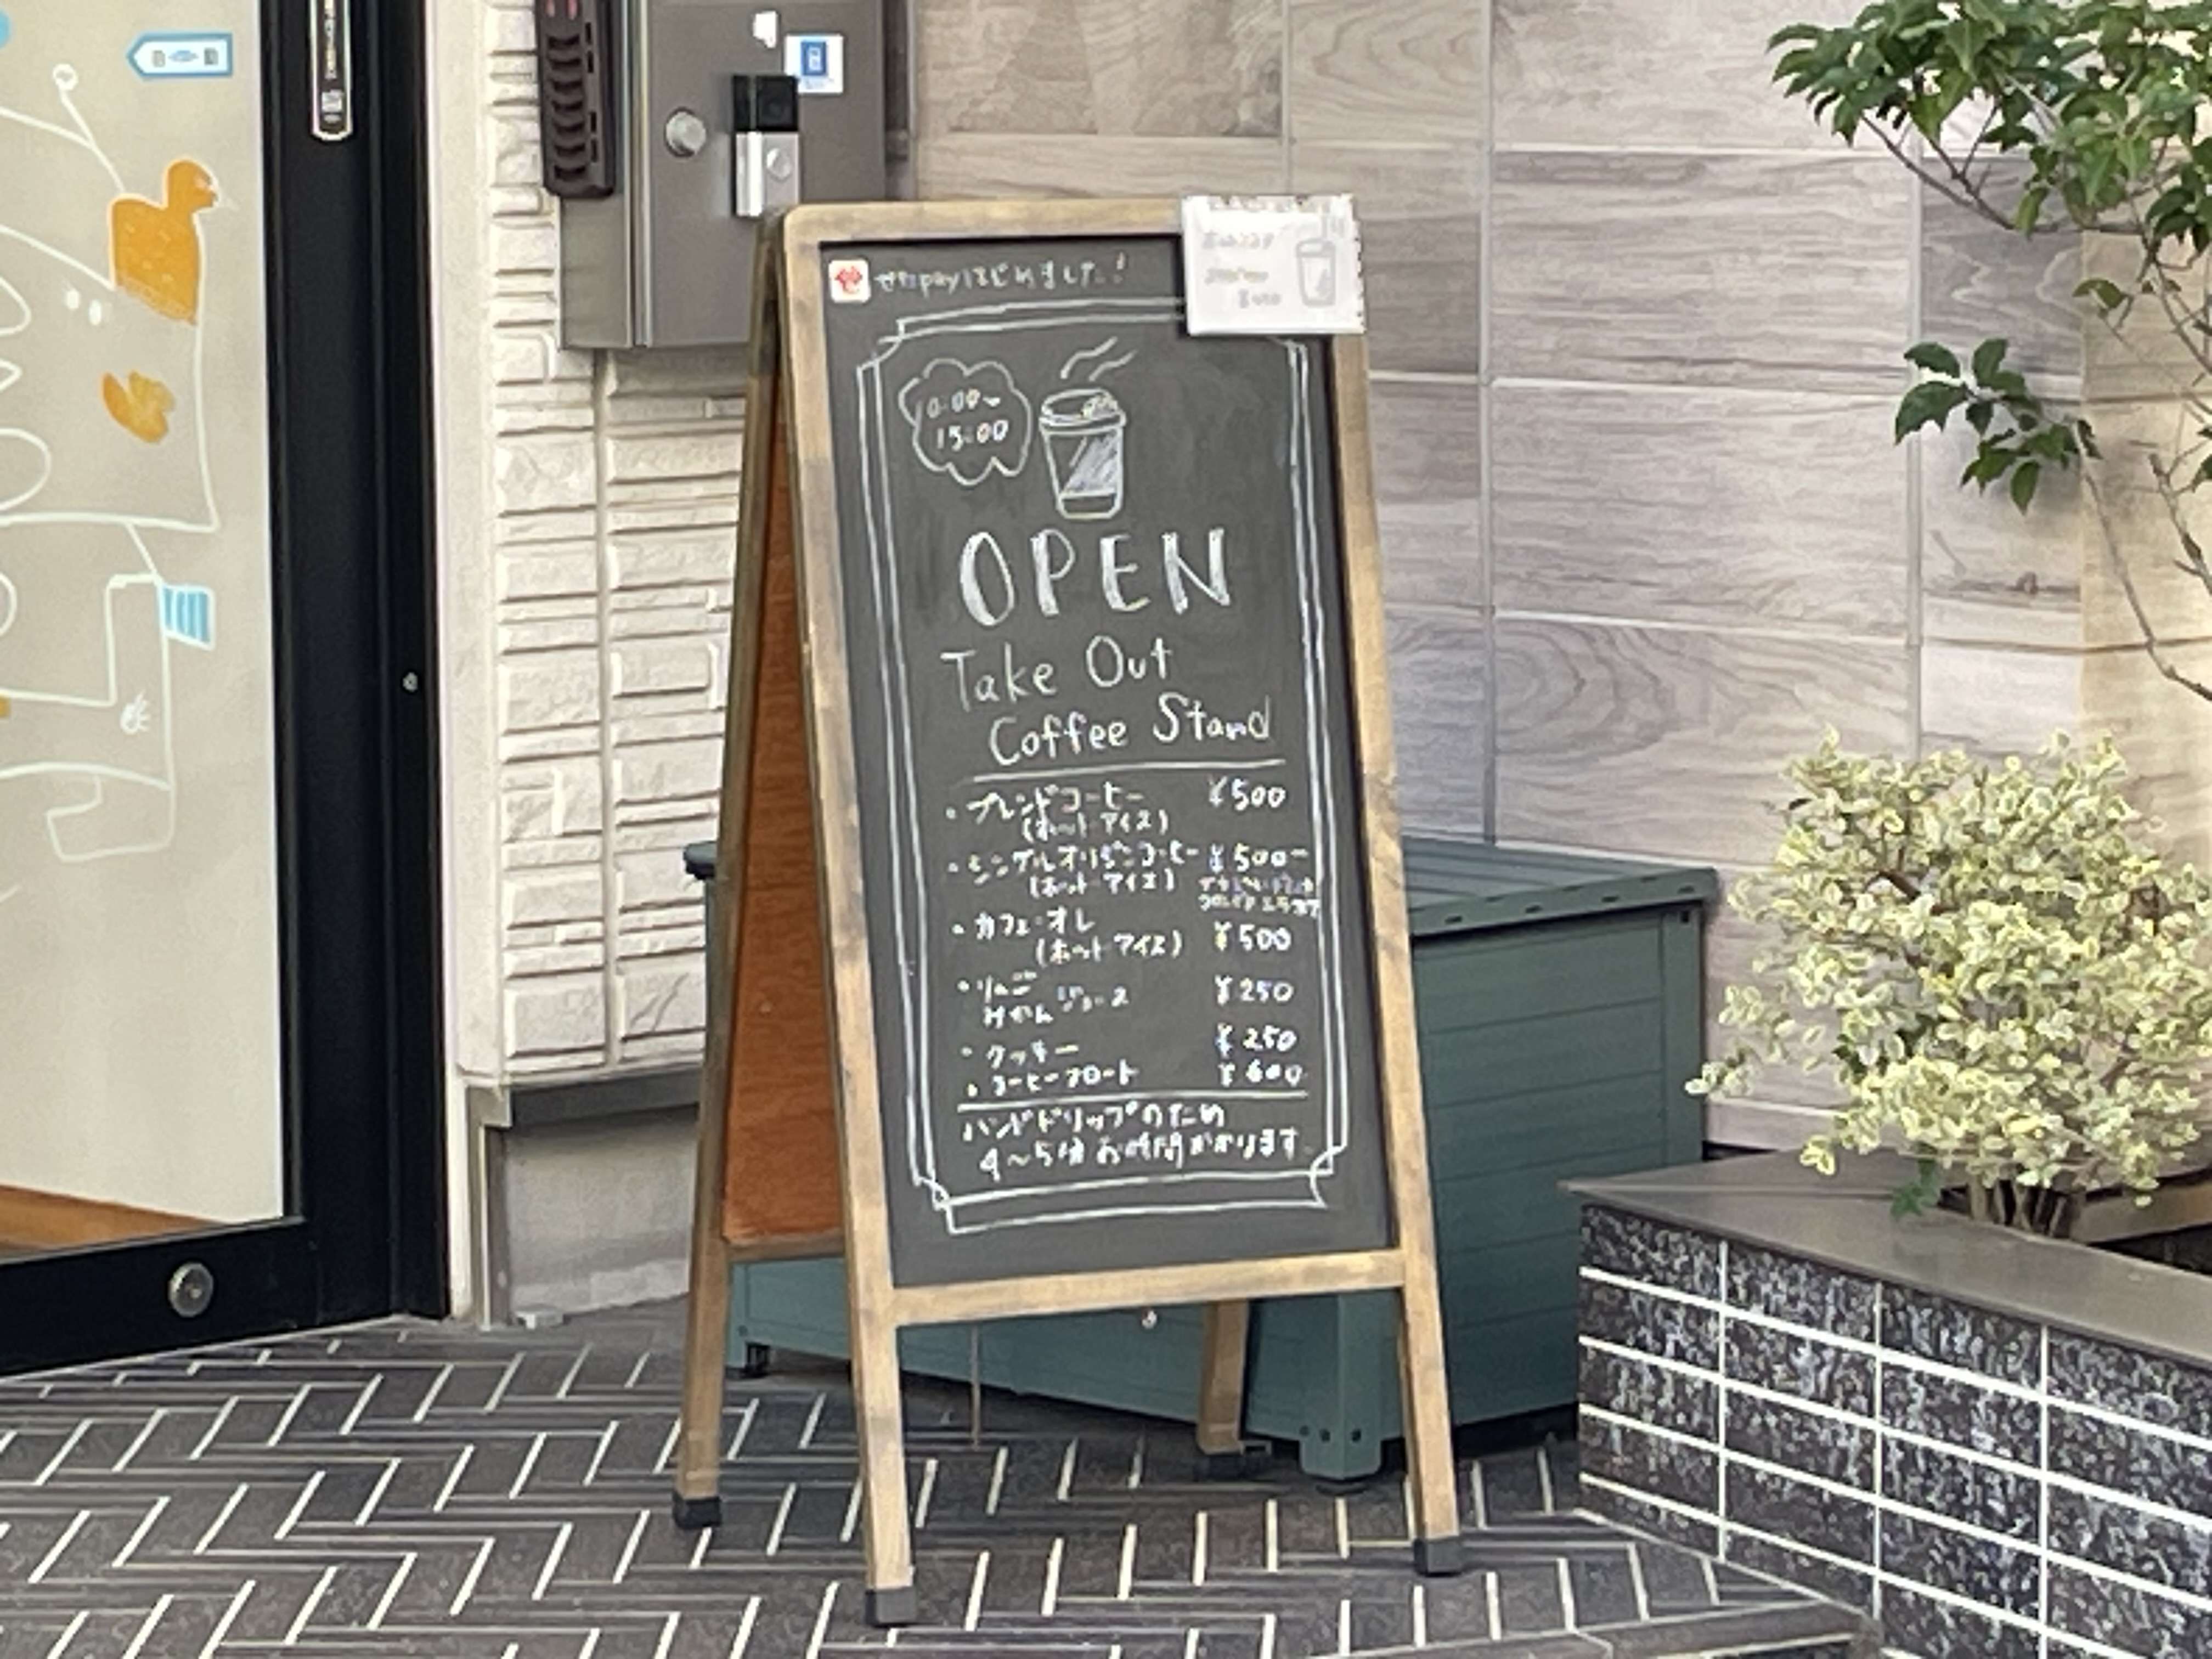 せ
せたpayはじめました!
10:00~
15:00
OPEN
Take Out
Coffee Stand
・ブレンドコーヒー ¥500
(ホット アイス)
・シングルオリジンコーヒー ¥500~
(ホット アイス)
・カフェ・オレ
(ホット アイス) ¥500
・りんご
みかん ジュース ¥250
・クッキー ¥250
・コーヒーフロート ¥600
ハンドドリップのため
4~5分お時間かかります